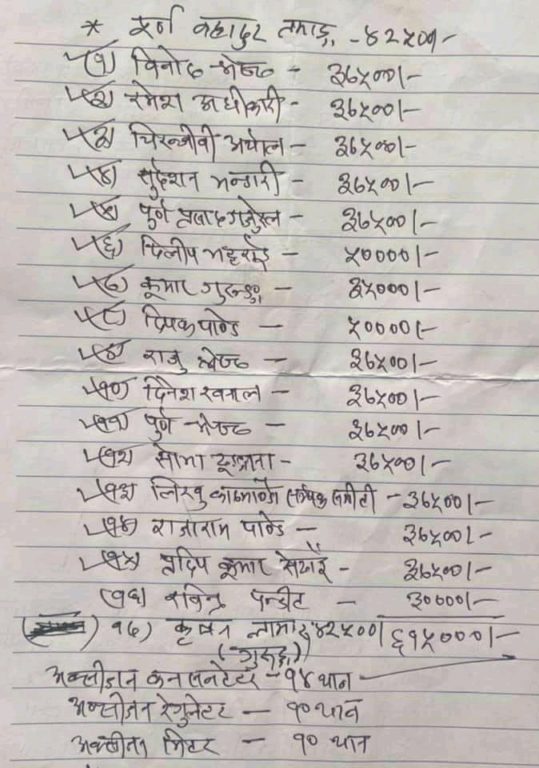 * पूर्ण बहादुर तामाङ्ग - ४२५००/-
(१) विनोद श्रेष्ठ - ३६५००/-
(२) रमेश अधीकारी - ३६५००/-
(३) चिरन्जीवी अर्याल - ३६५००/-
(४) सुदेशन भन्डारी - ३६५००/-
(५) पुर्ण प्रसाद गजुरेल - ३६५००/-
(६) दिलीप भट्टराई - ५००००/-
(७) कुमार गुरुङ्ग - ३५०००/-
(८) दिपक पाण्डे - ५००००/-
(९) राजु श्रेष्ठ - ३६५००/-
(१०) दिनेश खनाल - ३६५००/-
(११) पुर्ण श्रेष्ठ - ३६५००/-
(१२) सोभा - ३६५००/-
(१३) लिखु काठमाण्डौ सर्म्पक समीती - ३६५००/-
(१४) राजाराम पाण्डे - ३६५००/-
(१५) प्रदिप कुमार सेढाई - ३६५००/-
(१६) रविन्द्र पन्डीट - ३००००/-
१७) कृष्ण लामा ४२५००/ ६१५०००/-
(गुरुङ्ग)
अक्सीजन कनसनटेटर - १४ थान
अक्सीजन रेगुलेटर - १० थान
अक्सीजन मिटर - १० थान